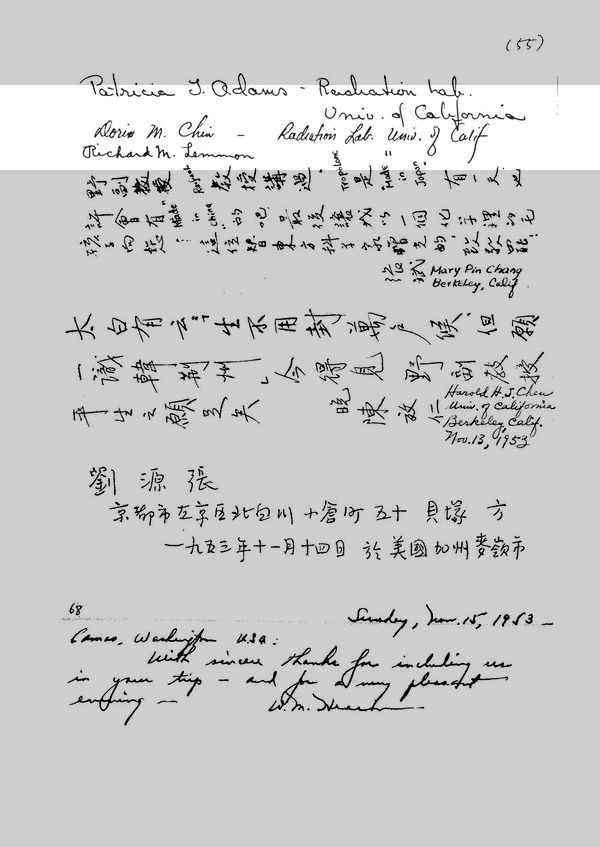 (55)
Patricia J. Adams - Radiation Lab.
Univ. of California
Doris M. Chin - Radiation Lab. Univ. of Calif
Richard M. Lemmon
野副教授 教授講過 "Tropolone 是 "Made in Japan" 有一天也
許會有 "Made in China" 的吧 最後讓我以一個化学裡的毛
孩子向您
Mary Pin Chang
Berkeley, Calif
太白有云 "生不用封萬戶侯, 但願
一識韓荆州" 今得見 野副教授
平生之願足矣 晚 陳 敬 仁
Harold H. J. Chen
Univ. of California
Berkeley, Calif.
Nov. 13, 1953
劉 源 張
京都市左京区北白川 小倉町 五十 貝塚 方
一九五三年十一月十四日 於美國加州麥嶺市
68
Sunday, Nov. 15, 1953 -
Camas, Washington U.S.A.
With sincere thanks for including us
in your trip - and for a very pleasant
evening - W. M. Hearon